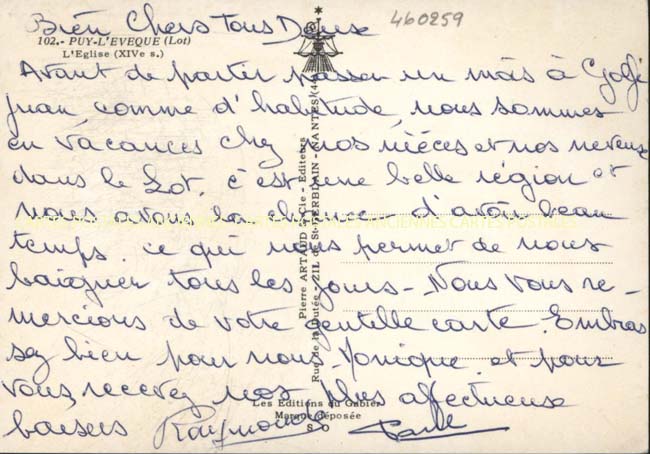 Bien Chers Tous Deux
460259
102.- PUY-L'EVEQUE (Lot)
L'Eglise (XIVe s.)
Avant de partir passer un mois à Golfe
juan, comme d'habitude, nous sommes
en vacances chez nos nièces et nos neveux
dans le Lot. c'est une belle région et
nous avons la chance d'avoir beau
temps. ce qui nous permet de nous
baigner tous les jours - Nous vous re-
mercions de votre gentille carte. Embras
sez bien pour nous Monique et pour
vous, recevez nos plus affectueux
baisers Raymonde
Pierre ARTAUD & Cie - Editeurs
ZIL de St-HERBLAIN - NANTES (44)
Les Editions du Gabier
Marque déposée
S O